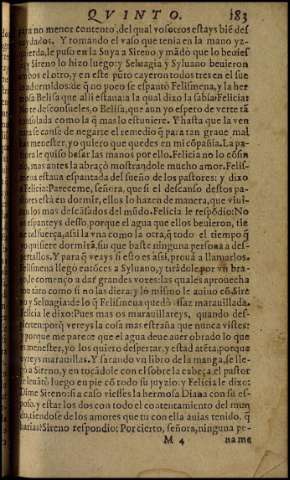 QVINTO. 183
no menor contento, del qual vosotros estays biē des
cuydados. Y tomando el vaso que tenia en la mano yz-
quierda, le puso en la suya a Sireno, y mādo que lo beuiesse
y Sireno lo hizo luego: y Seluagia, y Syluano beuieron
ambos el otro, y en este pūto cayeron todos tres en el sue
lo adormidos: de q̄ no poco se espantò Felismena, y la her
mosa Belisa que alli estaua: a la qual dixo la sabia Felicia:
no te desconsueles, o Belisa, que aun yo espero de verte tā
consolada como la q̄ mas lo estuuiere. Y hasta que la ven
tura se canse de negarte el remedio q̄ para tan graue mal
has menester, yo quiero que quedes en mi cōpañia. La pa
stora le quiso besar las manos por ello, Felicia no lo cōsin
tio, mas antes la abraçò mostrandole mucho amor. Felis-
mena estaua espantada del sueño de los pastores: y dixo
a Felicia: Pareceme, señora, que si el descanso destos pa-
stores està en dormir, ellos lo hazen de manera, que viui-
ran los mas descāsados del mūdo. Felicia le respōdio: No
os espanteys desso, porque el agua que ellos beuieron, tie
ne tal fuerça, assi la vna como la otra, q̄ todo el tiempo q̄
yo quisiere dormirā, sin que baste ninguna persona a des-
pertallos. Y para q̄ veays si esto es assi, prouà a llamarlos.
Felismena llego entōces a Syluano, y tirādole por vn bra-
ço le començo a dar grandes vozes: las quales aprouecha
ron tanto como si no las diera: y lo mismo le auino cō Sire
no y Seluagia: de lo q̄ Felismena quedò assaz marauillada.
Felicia le dixo: Pues mas os marauillareys, quando des-
pierten, porq̄ vereys la cosa mas estraña que nunca vistes:
y porque me parece que el agua deue auer obrado lo que
es menester, yo los quiero despertar, y estad atēta, porque
oyreys marauillas. Y sacando vn libro de la manga, se lle-
go a Sireno, y en tocandole con el sobre la cabeça, el pastor
se leuātò luego en pie cō todo su juyzio: y Felicia le dixo:
Dime Sireno: si a caso viesses la hermosa Diana con su es-
poso, y estar los dos con todo el contentamiento del mun
do, riendose de los amores que tu con ella auias tenido, q̄
harias? Sireno respondio: Por cierto, señora, ninguna pe-
M 4 na me